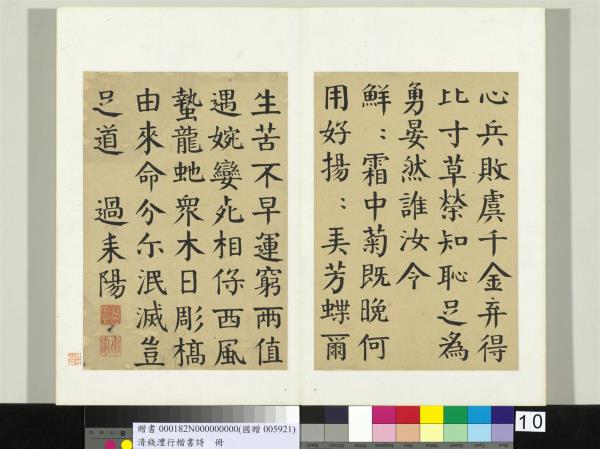 心兵敗虞千金弃得
比寸草榮知恥足為
勇晏然誰汝令
鮮：霜中菊既晚何
用好揚：弄芳蝶爾
生苦不早運窮兩值
遇婉孌死相保西風
蟄龍虵衆木日彫槁
由來命分尒泯滅豈
足道 過耒陽
贈書 000182N000000000(國贈 005921)
清錢灃行楷書詩 冊
10